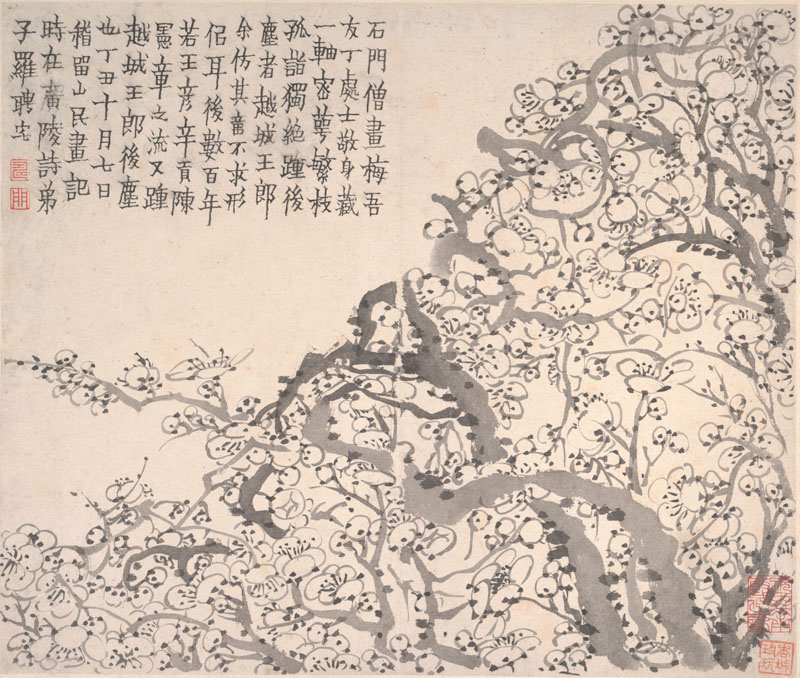 石門僧畫梅吾
友丁處士敬身藏
一軸密萼繁枝
孤詣獨絕踵後
塵者越城王郎
余仿其意不求形
佀耳後數百年
若王彥辛貢陳
憲章之流又踵
越城王郎後塵
也丁丑十月七日
稽留山民畫記
時在廣陵詩弟
子羅聘宅